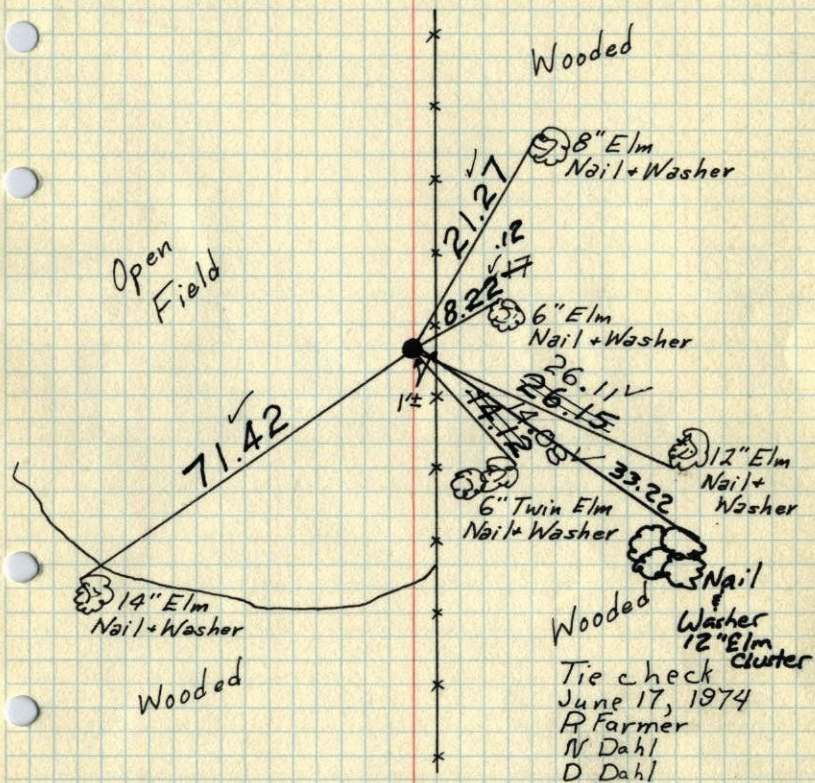 Wooded
8" Elm
Nail + Washer
21.27
.12
8.22 17
6" Elm
Nail + Washer
Open
Field
26.11
26.15
1'±
14.12
14.08
71.42
12" Elm
Nail +
Washer
33.22
6" Twin Elm
Nail + Washer
14" Elm
Nail + Washer
Nail
&
Washer
12" Elm
Cluster
Wooded
Wooded
Tie check
June 17, 1974
R Farmer
N Dahl
D Dahl